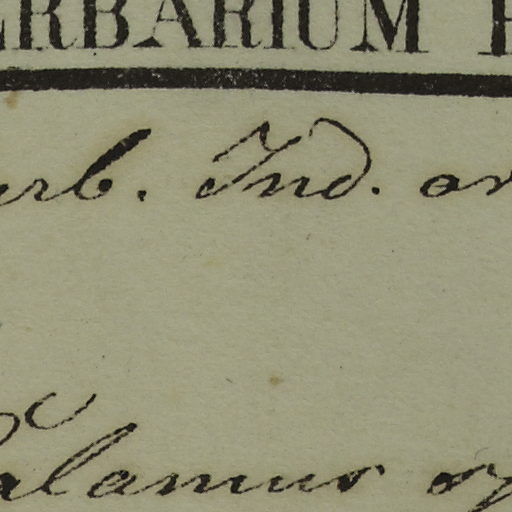 ERBARIUM
erb. Ind. or
Calamus